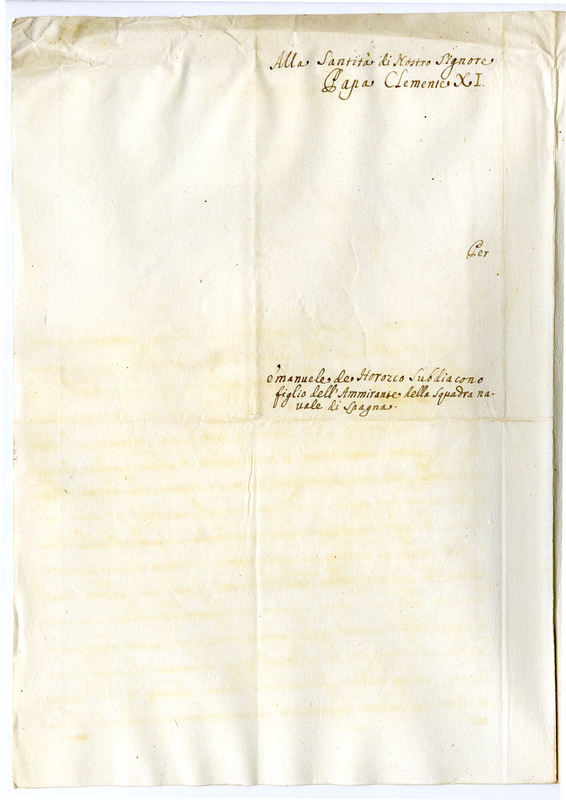 Alla Santità di Nostro Signore
Papa Clemente XI.
Per
Emanuele de Horozco Subdiacono
figlio dell'Ammirante della Squadra na-
vale di Spagna.